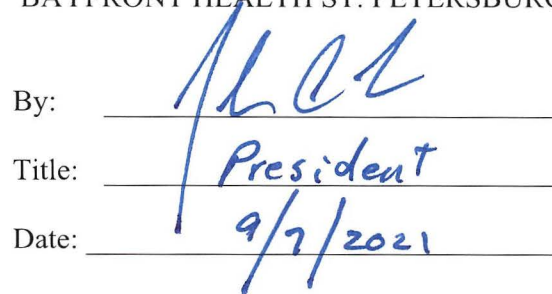 BAYFRONT HEALTH ST. PETERSBURG
By:
Title: President
Date: 9/7/2021